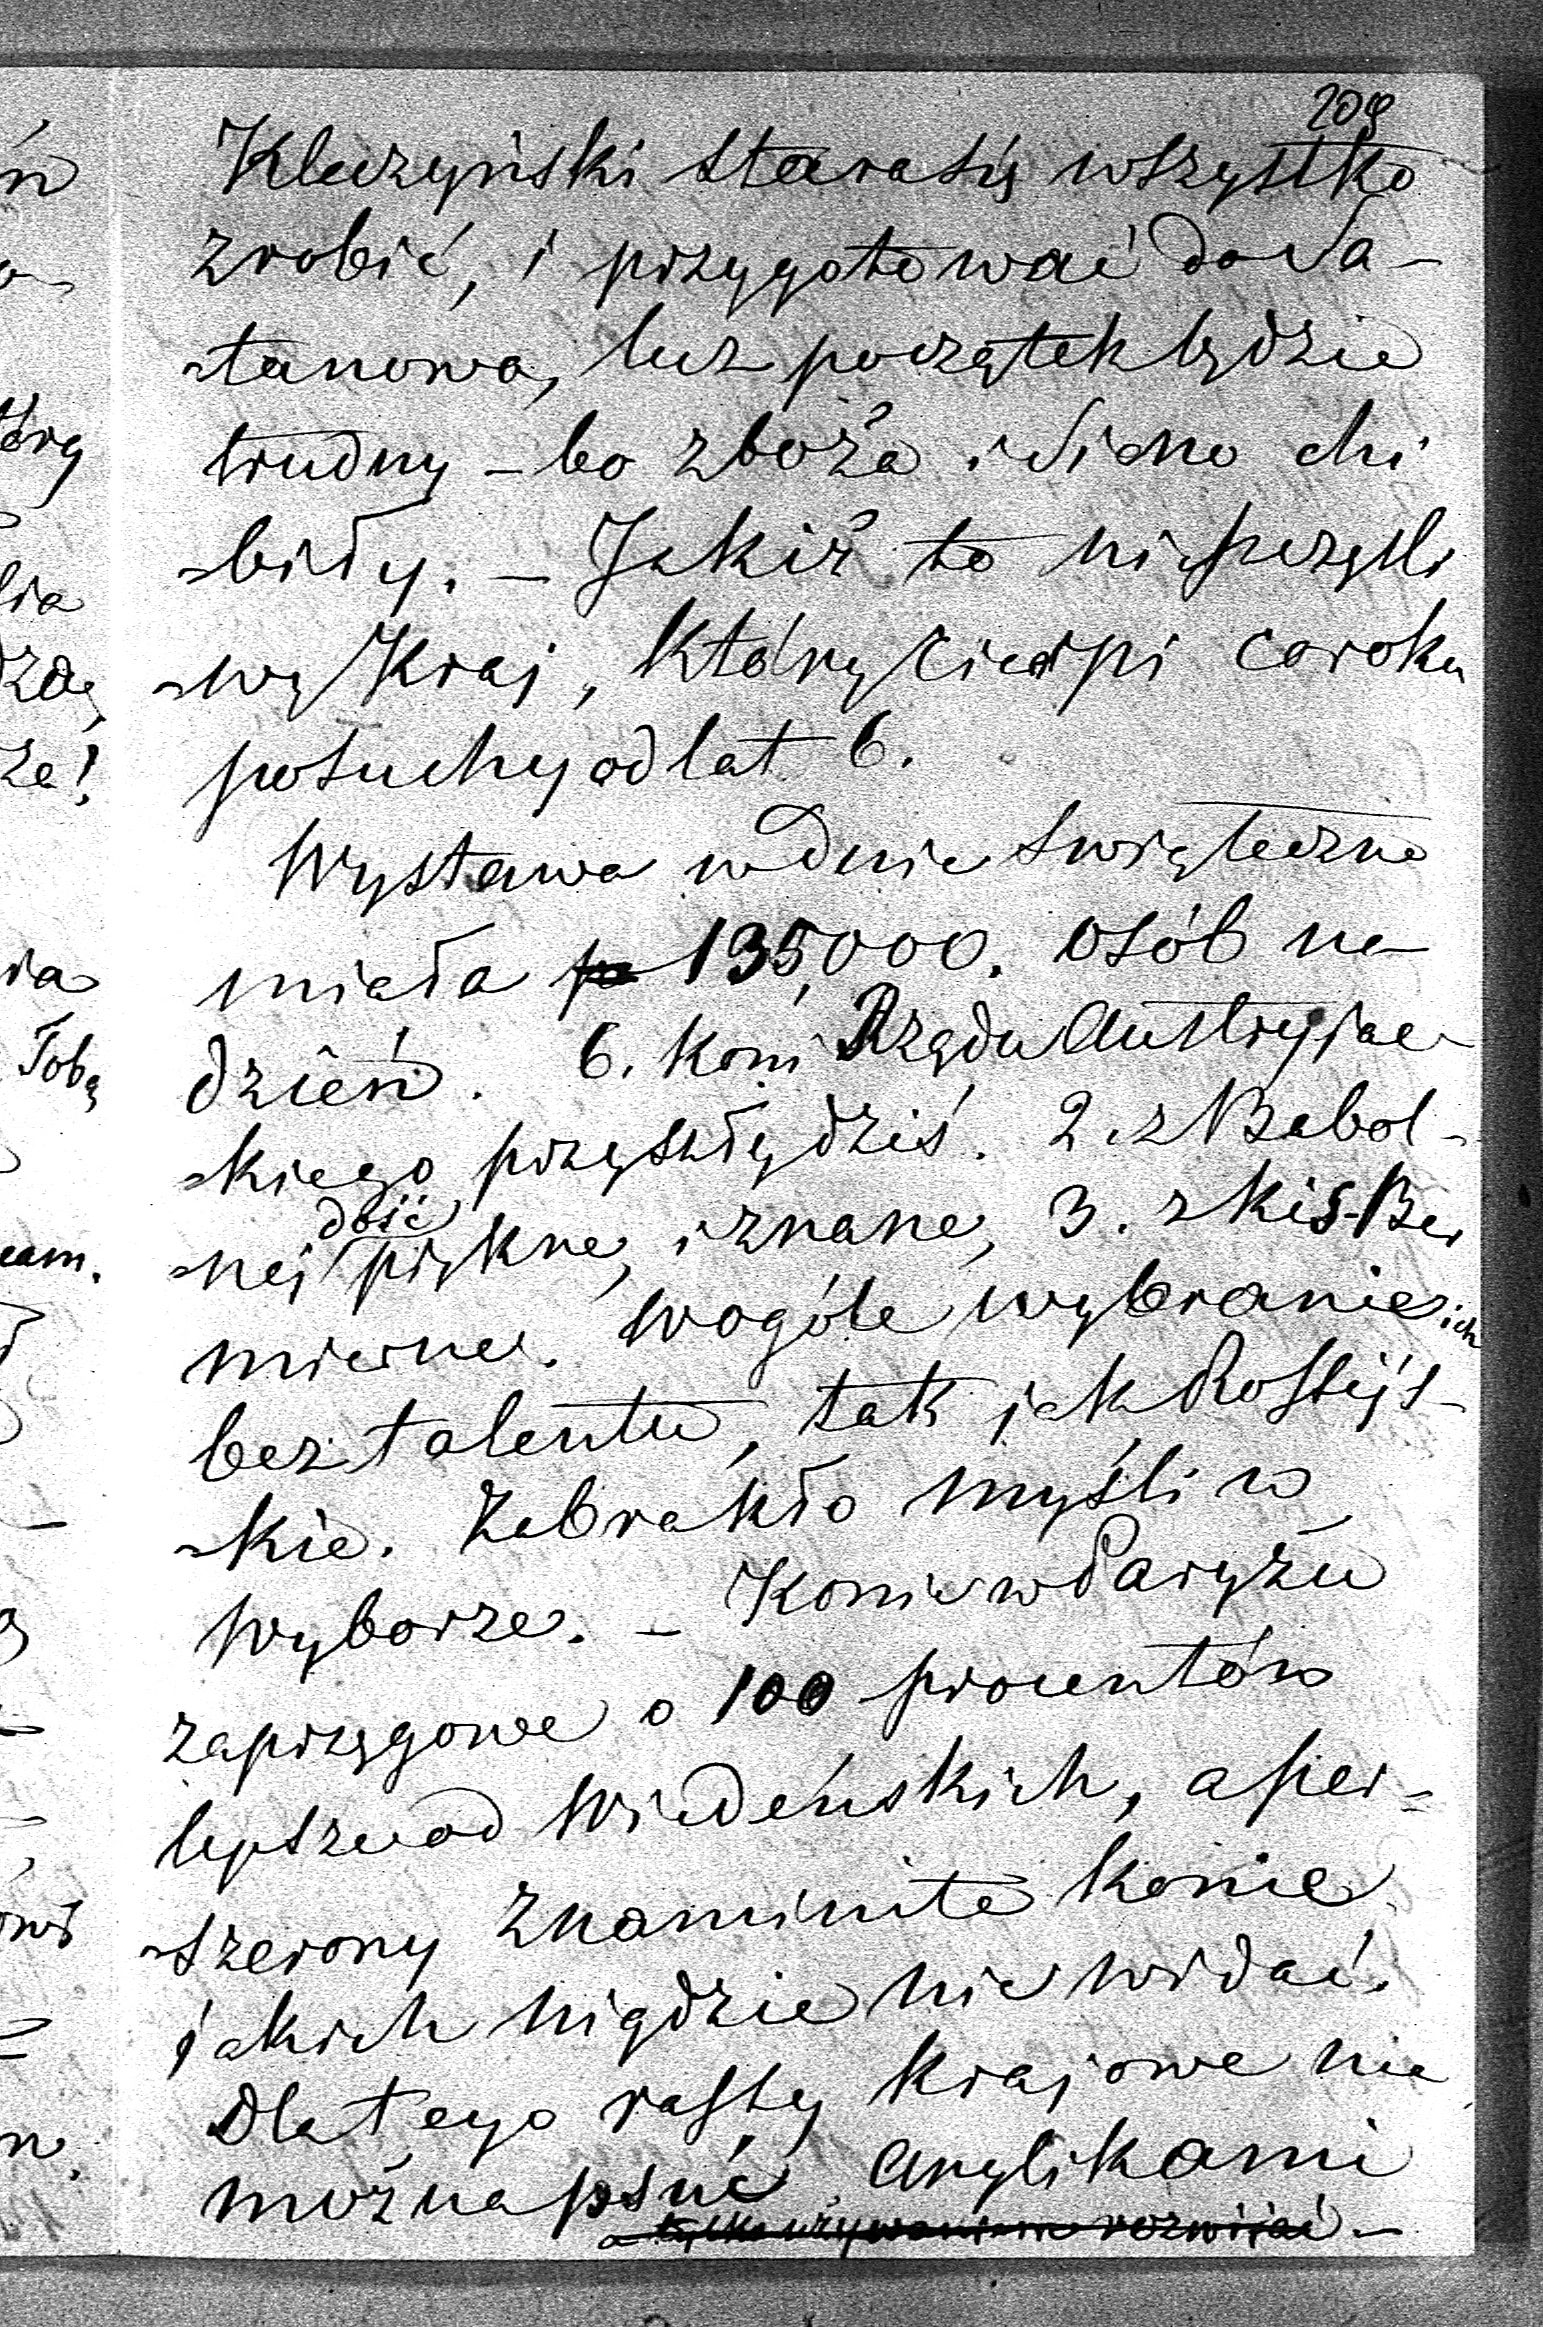 209
Kluczyński stara się wszystko
zrobić, i przygotować do Sa-
-tanowa, lecz początek będzie
trudny – bo zboża i siano chi
-biły. – Jakiż to nieszczęśli
-wy Kraj, który cierpi co roku
posuchy od lat 6.
Wystawa w dnie świąteczne
miała po 135,000. osób na
dzień. 6. koni Rządu Austryjac-
-kiego przyszły dziś. 2. z Babol-
-nej dość piękne, i znane, 3. z Kis-Ber
mierne. Wogóle wybranie ich
bez talentu, tak jak Rossyjs-
-kie. Zabrakło myśli w
wyborze. – Konie w Paryżu
zaprzęgowe o 100 procentów
lepsze od Wiedeńskich, a per-
-szerony znamienite konie
jakich nigdzie nie widać.
Dlatego rassy krajowe nie
można psuć Anglikami
a tylko używaniem rozwijać –
ń
tóry
lia
że!
ia
Tobą